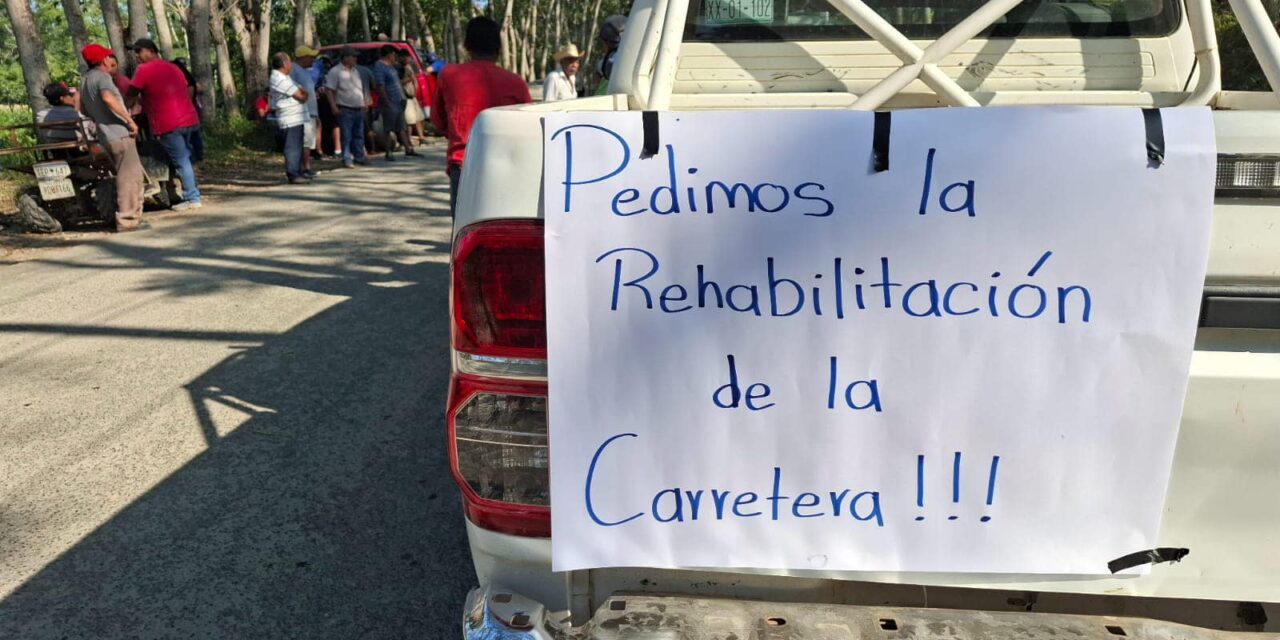 Pedimos la
Rehabilitación
de la
Carretera !!!